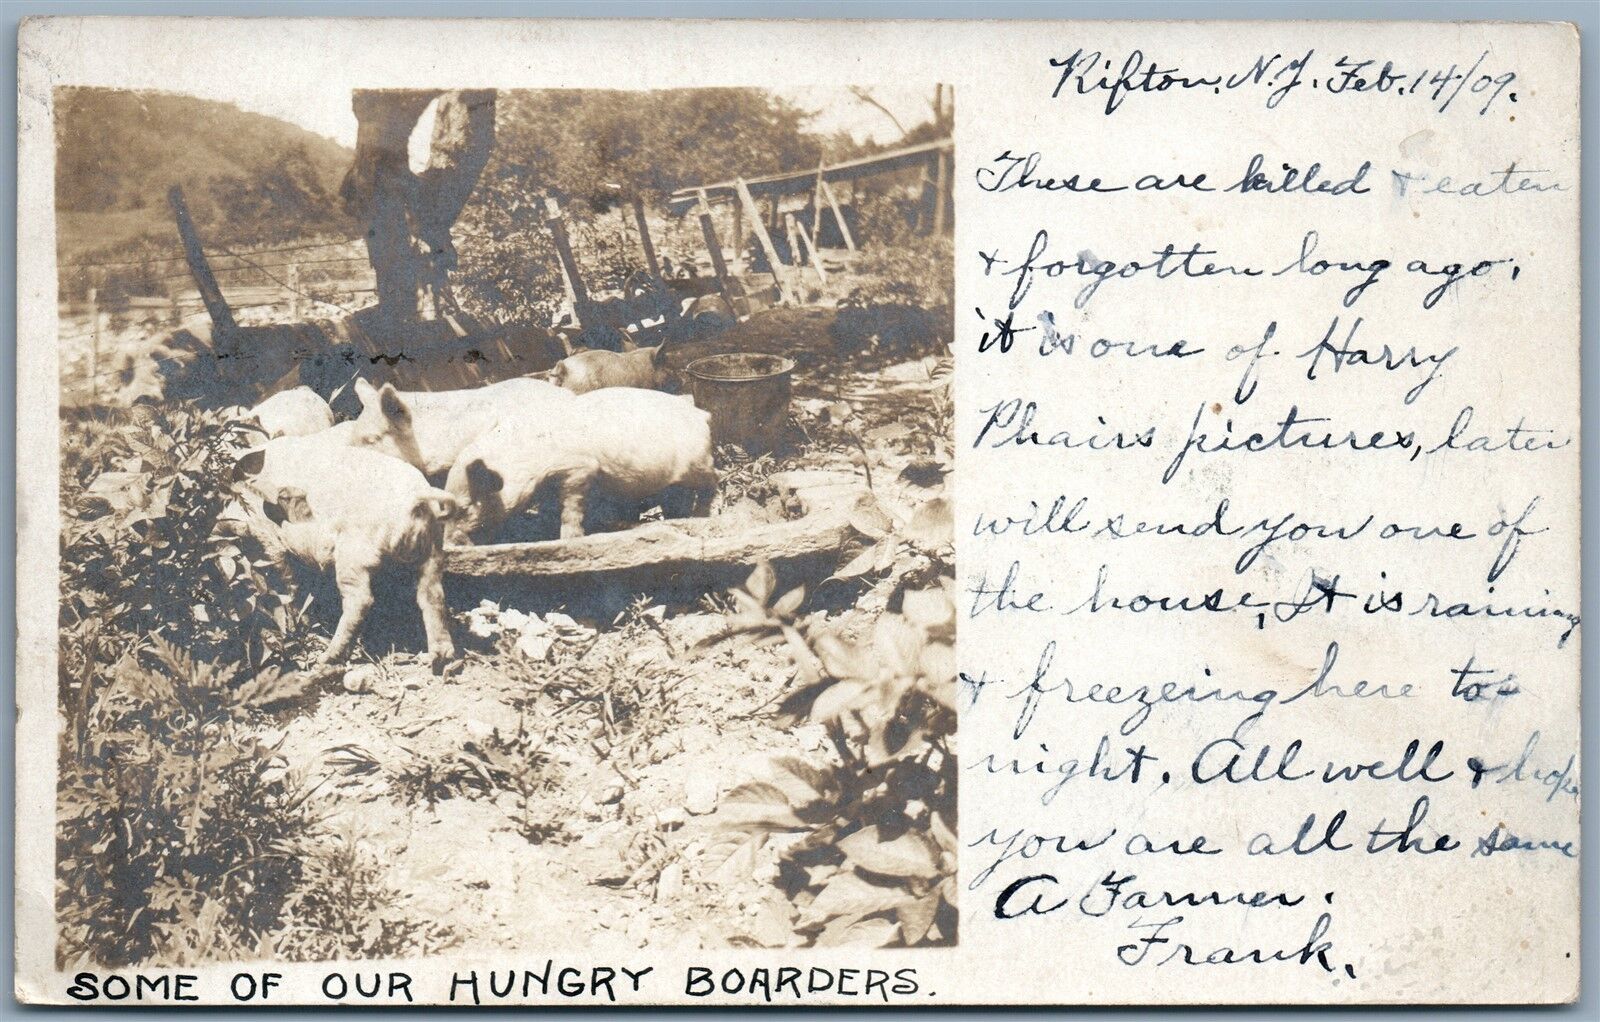 Rifton, N.Y. Feb. 14/09.
These are killed & eaten
& forgotten long ago,
it is one of Harry
Phairs pictures, later
will send you one of
the house, It is raining
& freezeing here to-
night. All well & hope
you are all the same
A Farmer.
Frank.
SOME OF OUR HUNGRY BOARDERS.